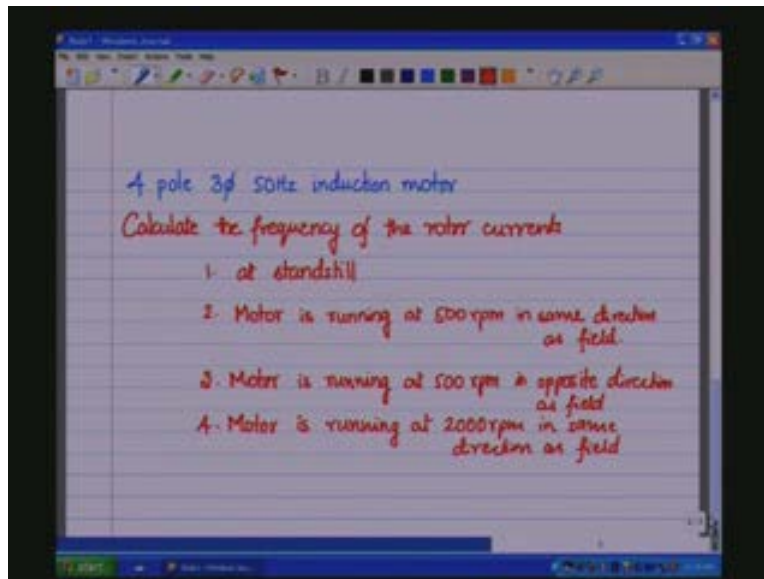 4 pole 3φ 50Hz induction motor
Calculate the frequency of the rotor currents
1. at standstill
2. Motor is running at 500 rpm in same direction
as field.
3. Motor is running at 500 rpm in opposite direction
as field
4. Motor is running at 2000 rpm in same
direction as field
start